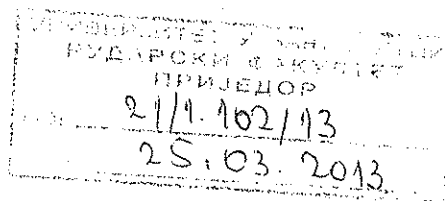 УНИВЕРЗИТЕТ У
РУДАРСКИ ФАКУЛТЕТ
ПРИЈЕДОР
21/1.102/13
25.03.2013